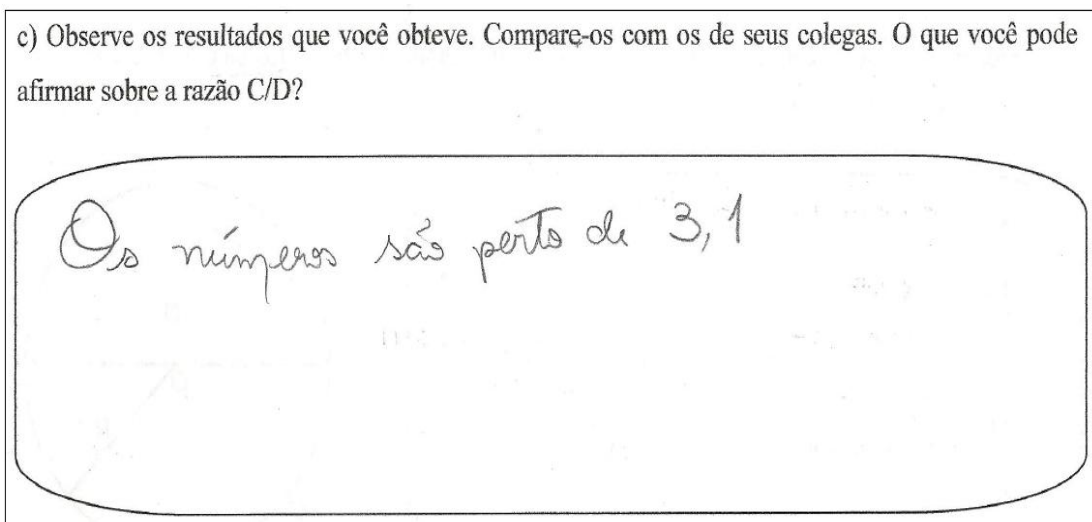 c) Observe os resultados que você obteve. Compare-os com os de seus colegas. O que você pode
afirmar sobre a razão C/D?
Os números são perto de 3,1